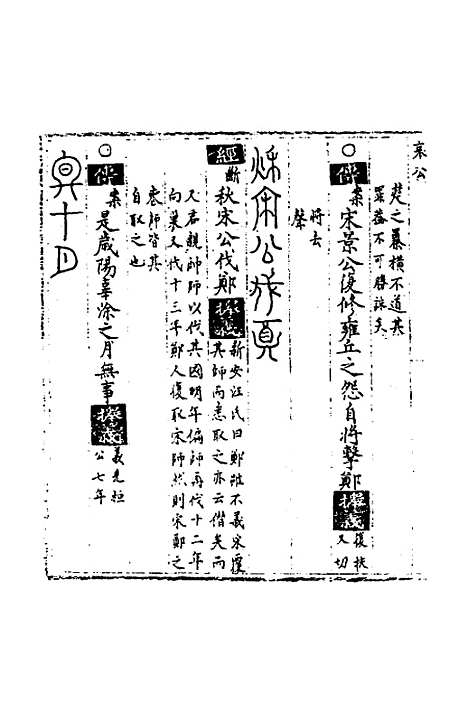 哀公
楚之暴橫不道其
罪蓋不可勝誅矣
傳 案 宋景公復修雍丘之怨自將擊鄭 釋義 復扶又切
將去聲
秋宋公伐鄭
經 斷 秋宋公伐鄭 釋義 新安汪氏曰鄭雖不義宋覆其師而悉取之亦云僭矣而
又君親帥師以伐其國明年偏師再伐十二年
向巢又伐十三年鄭人復取宋師然則宋鄭之
喪師皆其
自取之也
傳 案 是歲陽辜涂之月無事 釋義 義見桓公七年
冬十月